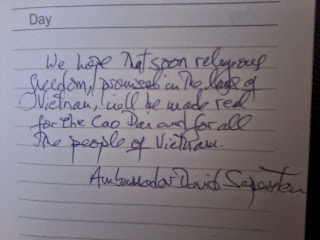 Day
We hope that soon religious
freedom, promised in the laws of
Vietnam, will be made real
for the Cao Dai and for all
the people of Vietnam.
Ambassador David Saperstein